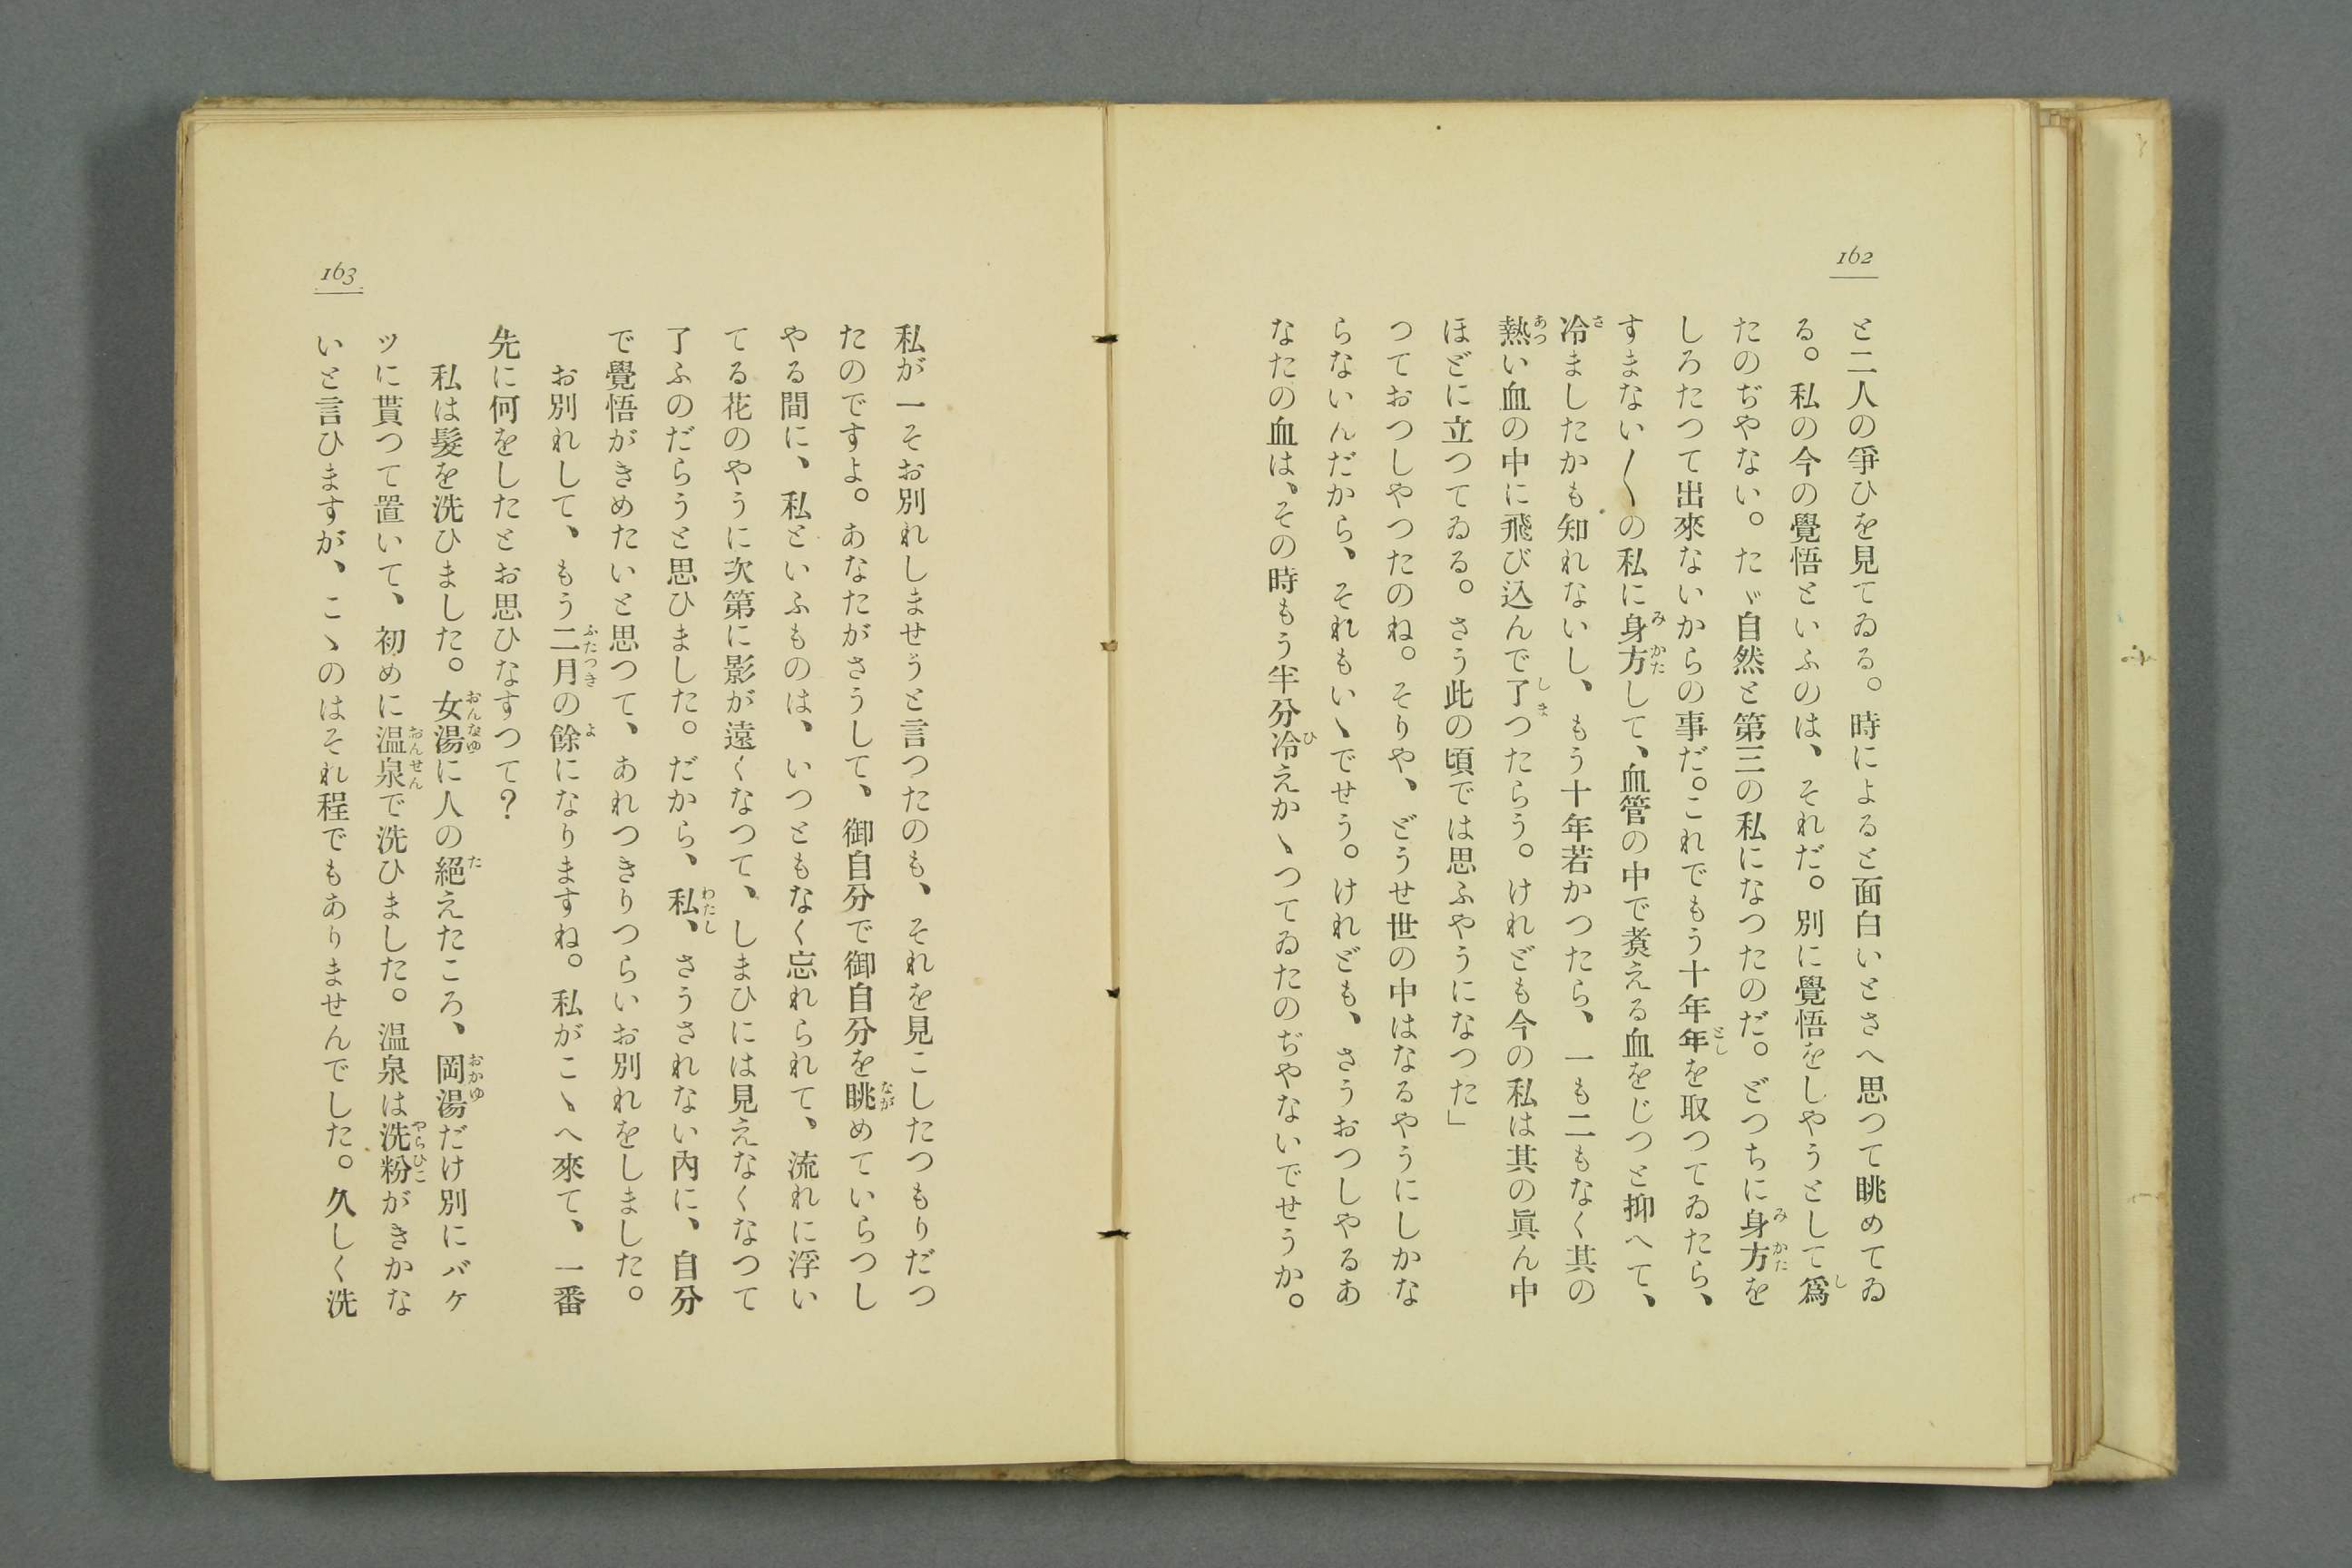 162
と二人の爭ひを見てゐる。時によると面白いとさへ思つて眺めてゐ
る。私の今の覺悟といふのは、それだ。別に覺悟をしやうとして爲
たのぢやない。たゞ自然と第三の私になつたのだ。どつちに身方を
しろたつて出來ないからの事だ。これでもう十年年を取つてゐたら、
すまない〱の私に身方して、血管の中で煮える血をじつと抑へて、
冷ましたかも知れないし、もう十年若かつたら、一も二もなく其の
熱い血の中に飛び込んで了つたらう。けれども今の私は其の眞ん中
ほどに立つてゐる。さう此の頃では思ふやうになつた」
つておつしやつたのね。そりや、どうせ世の中はなるやうにしかな
らないんだから、それもいゝでせう。けれども、さうおつしやるあ
なたの血は、その時もう半分冷えかゝつてゐたのぢやないでせうか。
163
私が一そお別れしませうと言つたのも、それを見こしたつもりだつ
たのですよ。あなたがさうして、御自分で御自分を眺めていらつし
やる間に、私といふものは、いつともなく忘れられて、流れに浮い
てる花のやうに次第に影が遠くなつて、しまひには見えなくなつて
了ふのだらうと思ひました。だから、私、さうされない内に、自分
で覺悟がきめたいと思つて、あれつきりつらいお別れをしました。
お別れして、もう二月の餘になりますね。私がこゝへ來て、一番
先に何をしたとお思ひなすつて?
私は髮を洗ひました。女湯に人の絕えたころ、岡湯だけ別にバケ
ツに貰つて置いて、初めに温泉で洗ひました。温泉は洗粉がきかな
いと言ひますが、こゝのはそれ程でもありませんでした。久しく洗